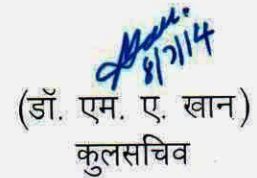 8/7/14
(डॉ. एम. ए. खान)
कुलसचिव